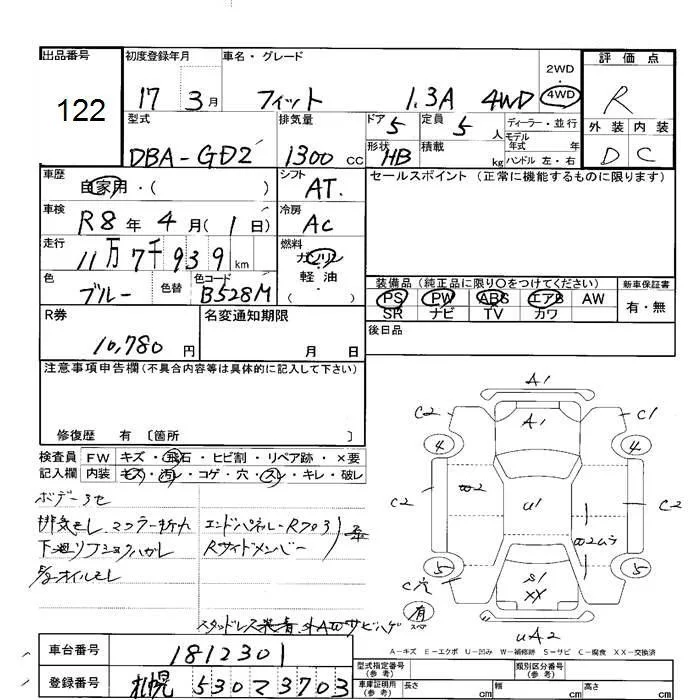 出品番号 初度登録年月 車名・グレード 2WD・4WD 評価点
122 17 3月 フィット 1.3A 4WD R
型式 排気量 ドア 5 定員 5人 ディーラー・並行 外装 内装
DBA-GD2 1300cc 形状 HB 積載 kg モデル年式 年 ハンドル 左・右 D C
車歴 自家用・( ) シフト AT. セールスポイント (正常に機能するものに限ります)
車検 R8年 4月(1日) 冷房 AC
走行 11万7千939km 燃料 ガソリン・軽油 ( )
色 ブルー 色替 色コード B528M
装備品 (純正品に限り○をつけてください) 新車保証書
PS PW ABS エアB AW 有・無
SR ナビ TV カワ
R券 10,780円 名変通知期限 月 日 後日品
注意事項申告欄 (不具合内容等は具体的に記入して下さい)
修復歴 有 〔箇所 〕
検査員 FW キズ・飛石・ヒビ割・リペア跡・×要
記入欄 内装 キズ・汚レ・コゲ・穴・スレ・キレ・破レ
A1
C2 A1 C1
4 4
C2 U1 C2
5 5
C穴 S1 XX
有 スペア
UA2
ボデーサビ
排気モレ マフラー折れ エンドパネル-R
Rサイドメンバー
オイルモレ
スタッドレス装着
A-キズ E-エクボ U-凹み W-補修跡 S-サビ C-腐食 XX-交換済
車台番号 1812301
登録番号 札幌 530 ス 3703
型式指定番号 (参考) 類別区分番号 (参考)
車庫証明用 (参考) 長さ cm 幅 cm 高さ cm